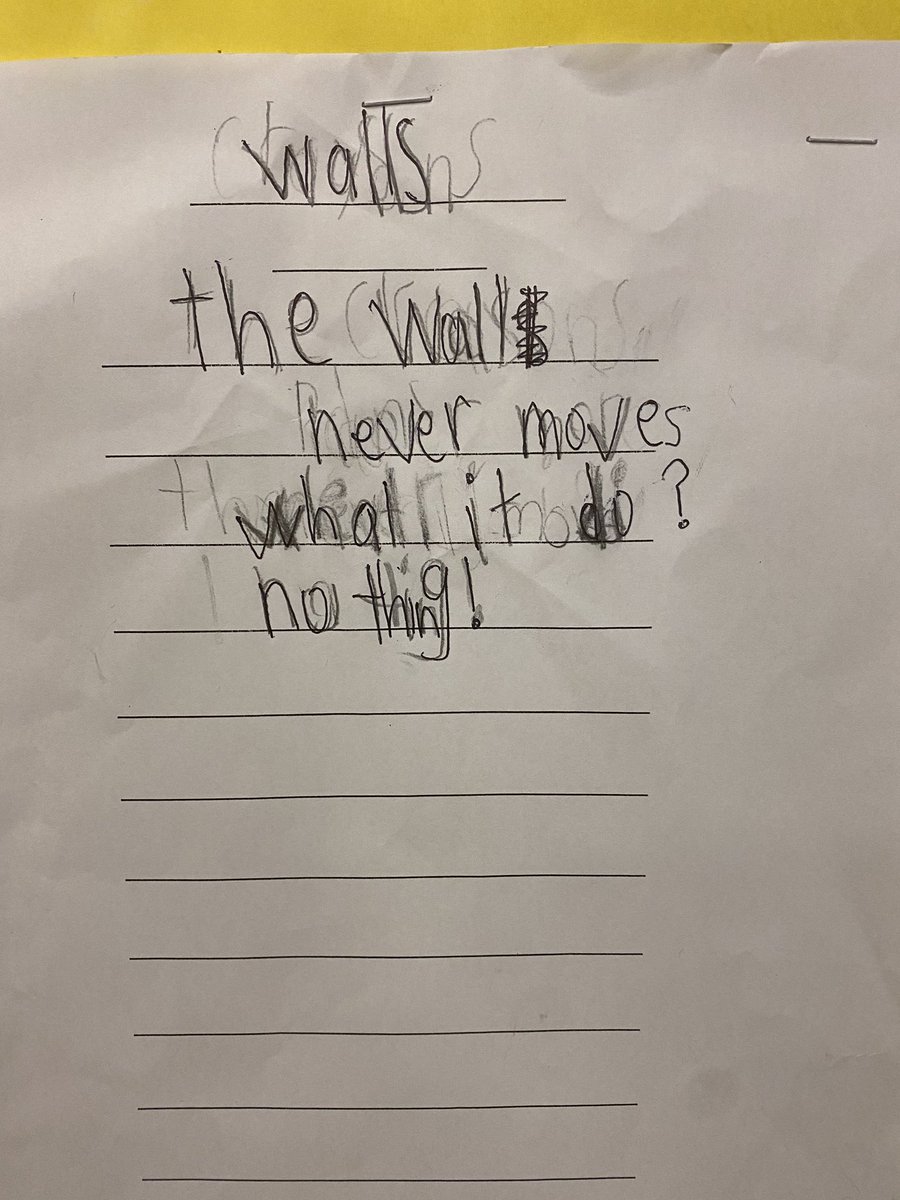 walls
the wall
never moves
what it do?
no thing!